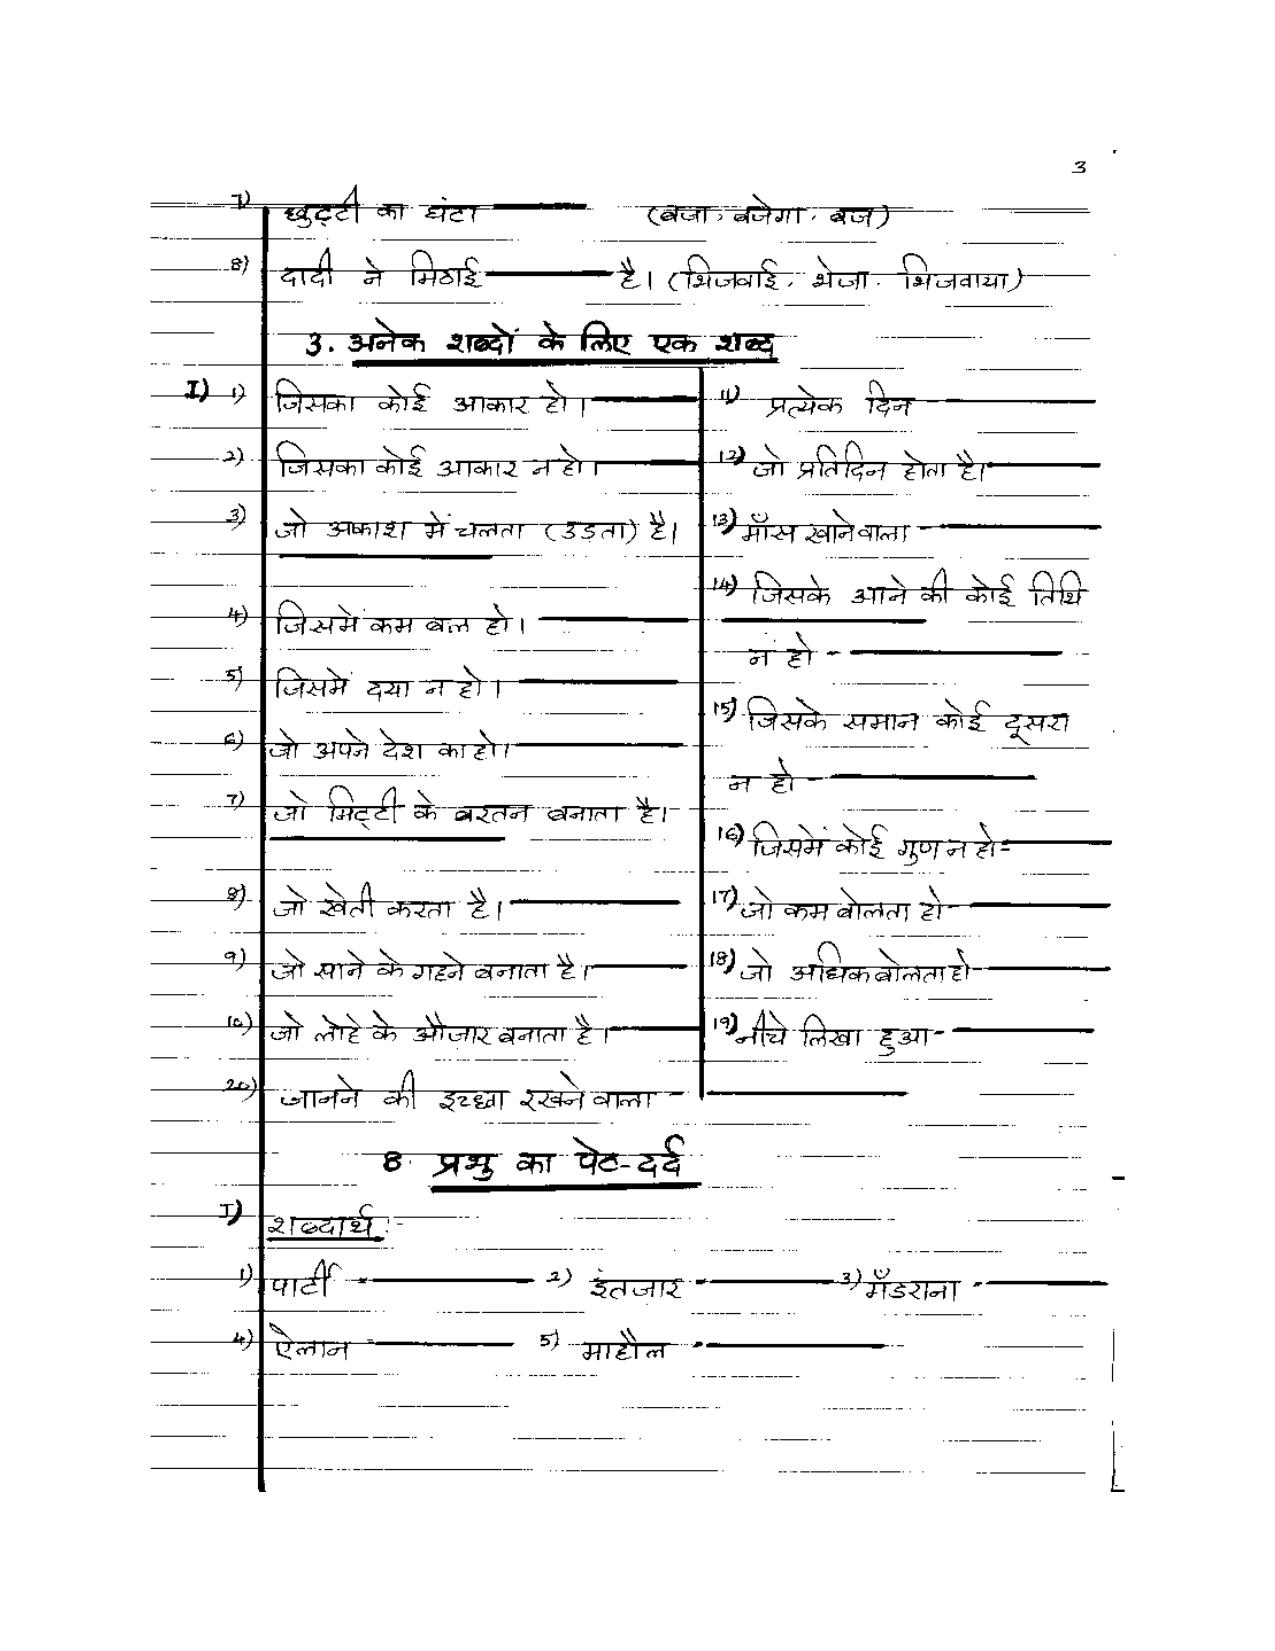 3
7) छुट्टी का घंटा ——— (बजा, बजेगा, बज)
8) दादी ने मिठाई ——— है। (भिजवाई, भेजा, भिजवाया)
3. अनेक शब्दों के लिए एक शब्द
I) 1) जिसका कोई आकार हो। ———
2) जिसका कोई आकार न हो। ———
3) जो अकाश में चलता (उड़ता) है। ———
4) जिसमें कम बल हो। ———
5) जिसमें दया न हो। ———
6) जो अपने देश का हो। ———
7) जो मिट्टी के बरतन बनाता है। ———
8) जो खेती करता है। ———
9) जो साने के गहने बनाता है। ———
10) जो लोहे के औजार बनाता है। ———
11) प्रत्येक दिन ———
12) जो प्रतिदिन होता है। ———
13) माँस खानेवाला ———
14) जिसके आने की कोई तिथि
न हो - ———
15) जिसके समान कोई दूसरा
न हो - ———
16) जिसमें कोई गुण न हो - ———
17) जो कम बोलता हो - ———
18) जो अधिक बोलता हो - ———
19) नीचे लिखा हुआ - ———
20) जानने की इच्छा रखने वाला - ———
8. प्रभु का पेट-दर्द
I) शब्दार्थ :-
1) पार्टी - ——— 2) इंतजार - ——— 3) मँडराना - ———
4) ऐलान - ——— 5) माहौल - ———